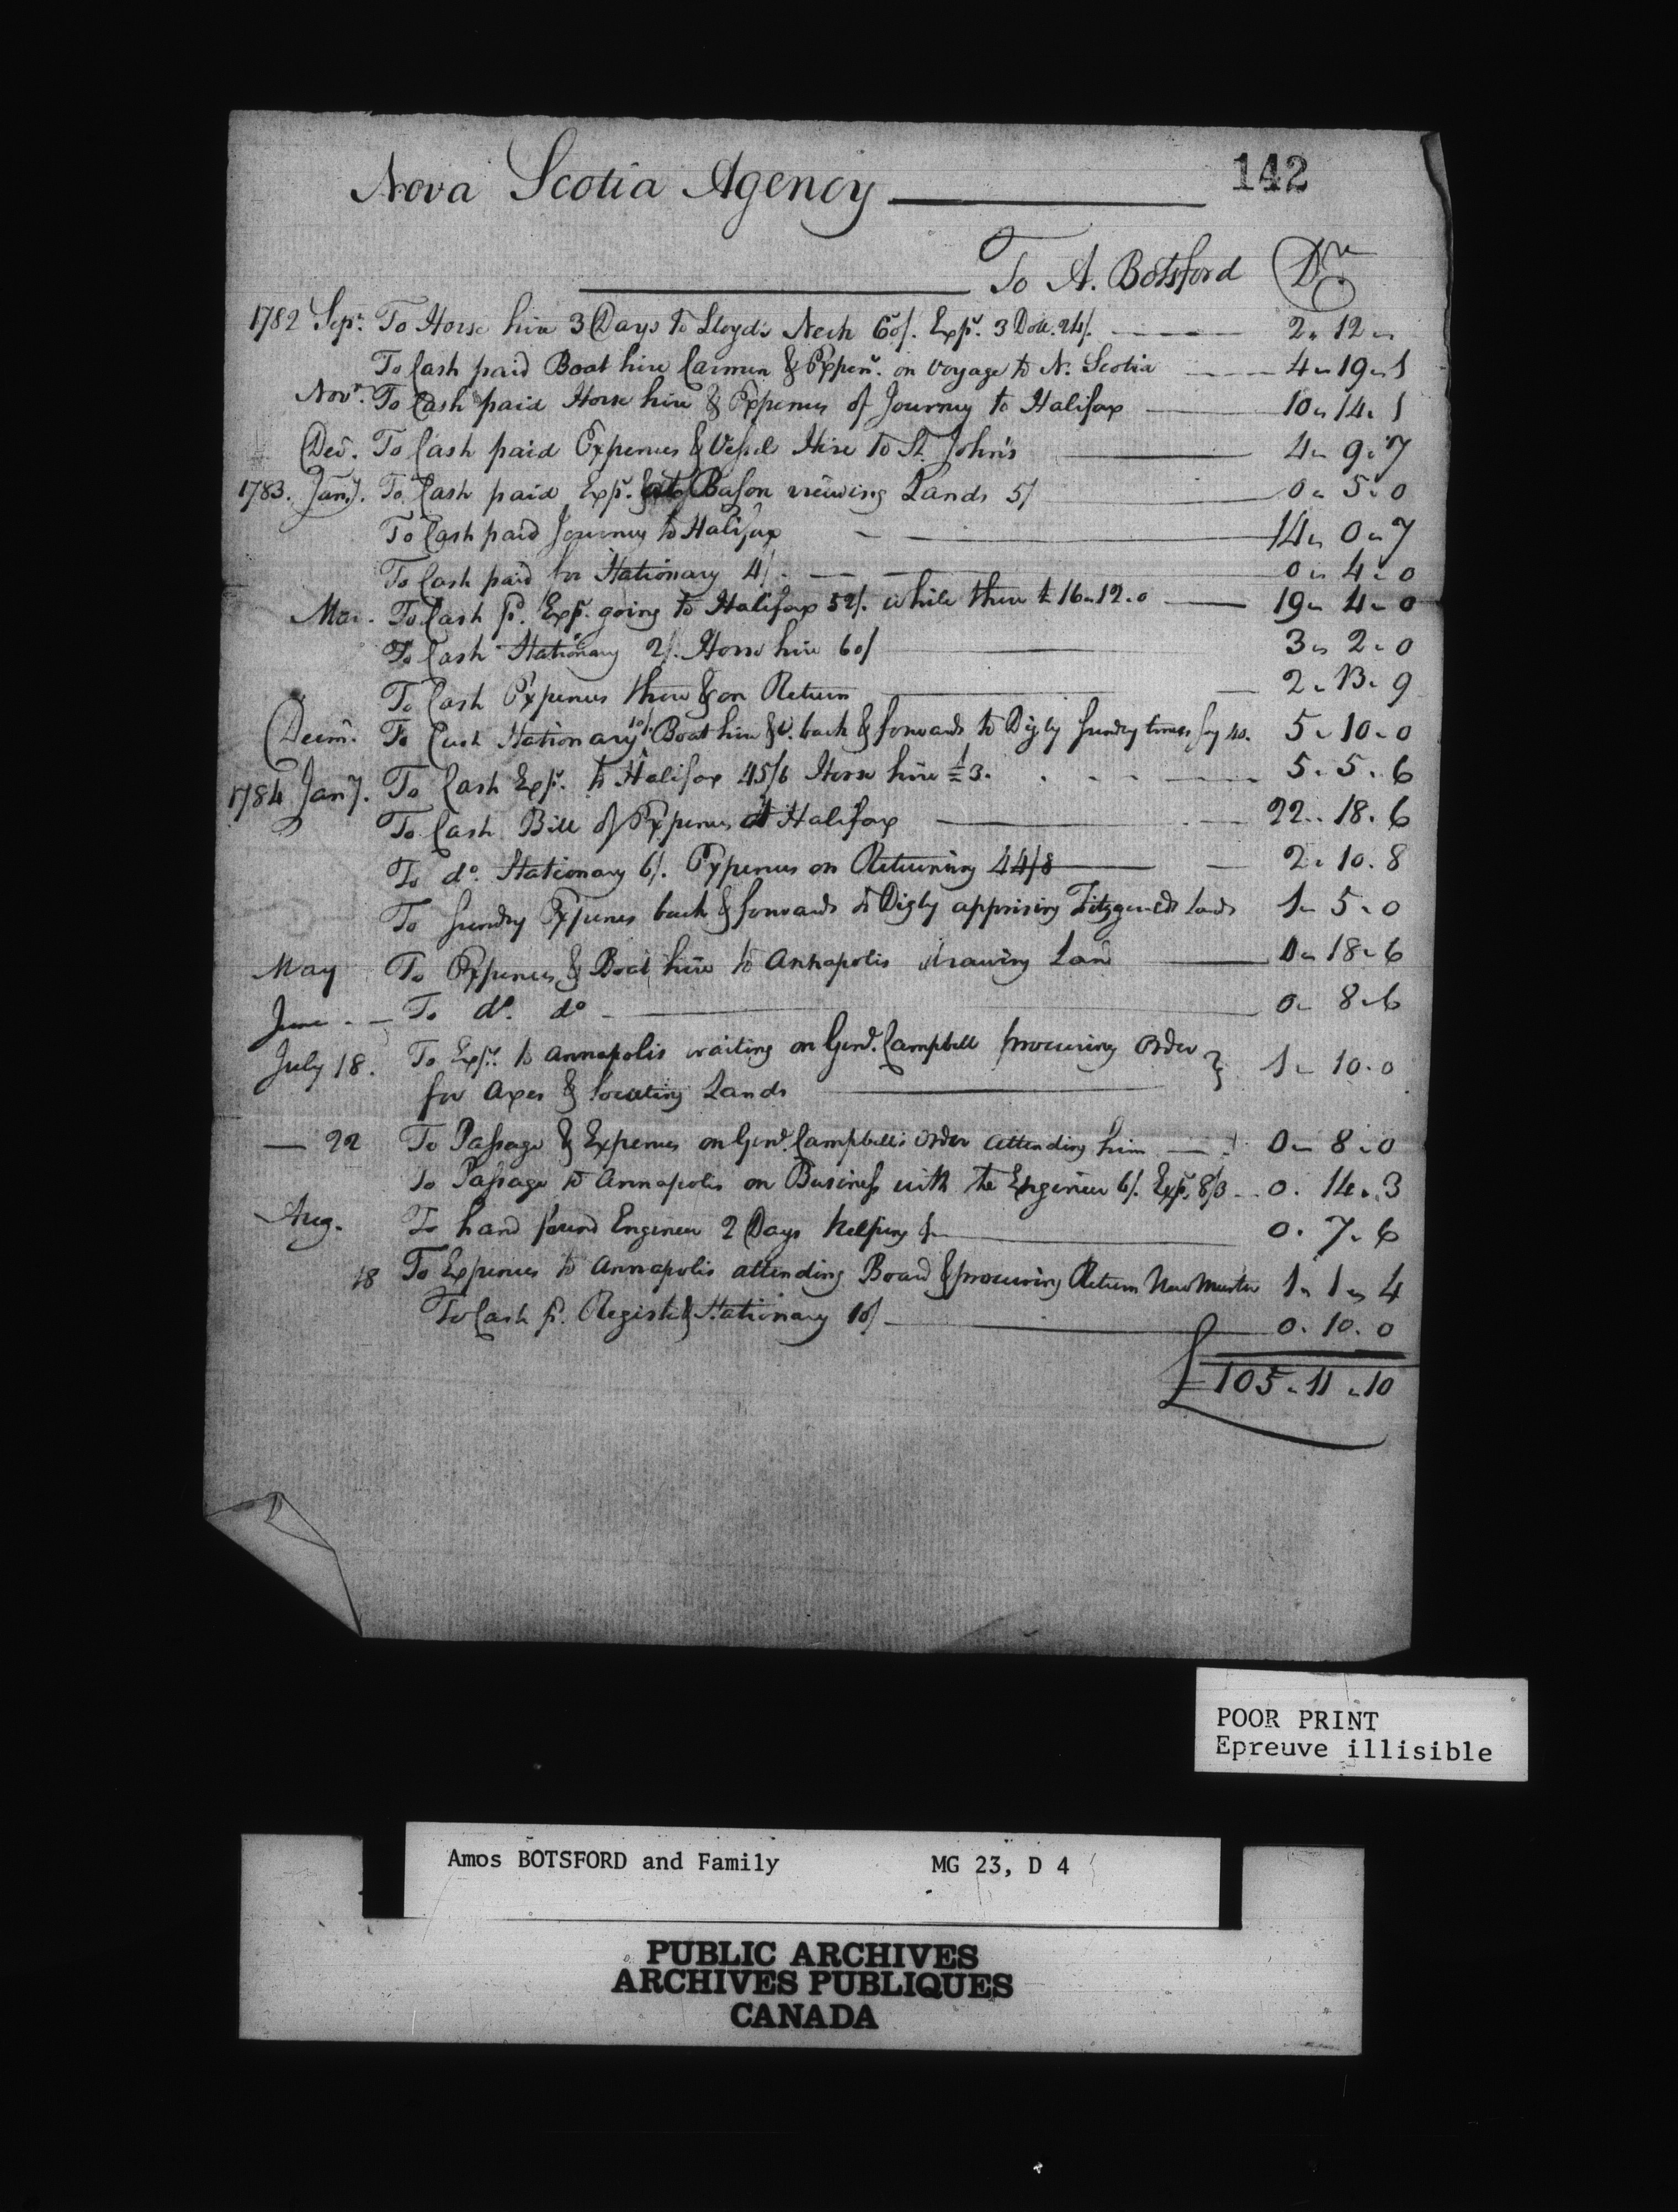 142
Nova Scotia Agency
To A. Botsford Dr
1782 Sepr. To Horse hire 3 Days to Lloyd's Neck 60/. Exps. 3 Doll. 24/. 2 " 12 "
To Cash paid Boat hire Carmen & Expens. on Voyage to N. Scotia 4 " 19 " 1
Novr. To Cash paid Horse hire & Expences of Journey to Halifax 10 " 14 " 1
Decr. To Cash paid Expences & Vessel Hire to St. John's 4 " 9 " 7
1783. Jany. To Cash paid Exps. Bason viewing Lands 5/ 0 " 5 " 0
To Cash paid Journey to Halifax 14 " 0 " 7
To Cash paid for Stationary 4/. 0 " 4 " 0
Mar. To Cash pd. Exps. going to Halifax 52/. while there £ 16 " 12 " 0 19 " 4 " 0
To Cash Stationary 2/. Horse hire 60/ 3 " 2 " 0
To Cash Expences there & on Return 2 " 13 " 9
Decm. To Cash Stationary 10/. Boat hire &c. back & forwards to Digby sundry times say 5 " 10 " 0
1784 Jany. To Cash Exps. to Halifax 45/6 Horse hire £3. 5 " 5 " 6
To Cash Bill of Expences at Halifax 22 " 18 " 6
To do. Stationary 6/. Expences on Returning 44/8 2 " 10 " 8
To sundry Expences back & forwards to Digby apprising Fitzgeralds Lands 1 " 5 " 0
May To Expences & Boat hire to Annapolis drawing Land 0 " 18 " 6
June To do. do 0 " 8 " 6
July 18. To Exps. to Annapolis waiting on Genl. Campbell procuring Order
for Axes & locating Lands 1 " 10 " 0
22 To Passage & Expences on Genl. Campbell's Order attending him 0 " 8 " 0
To Passage to Annapolis on Business with the Engineer 6/. Exps. 8/3 0 " 14 " 3
Aug. To hand found Engineer 2 Days helping 0 " 7 " 6
18 To Expences to Annapolis attending Board & procuring Return New Muster 1 " 1 " 4
To Cash pd. Register & Stationary 10/ 0 " 10 " 0
£ 105 " 11 " 10
POOR PRINT
Epreuve illisible
Amos BOTSFORD and Family MG 23, D 4
PUBLIC ARCHIVES
ARCHIVES PUBLIQUES
CANADA